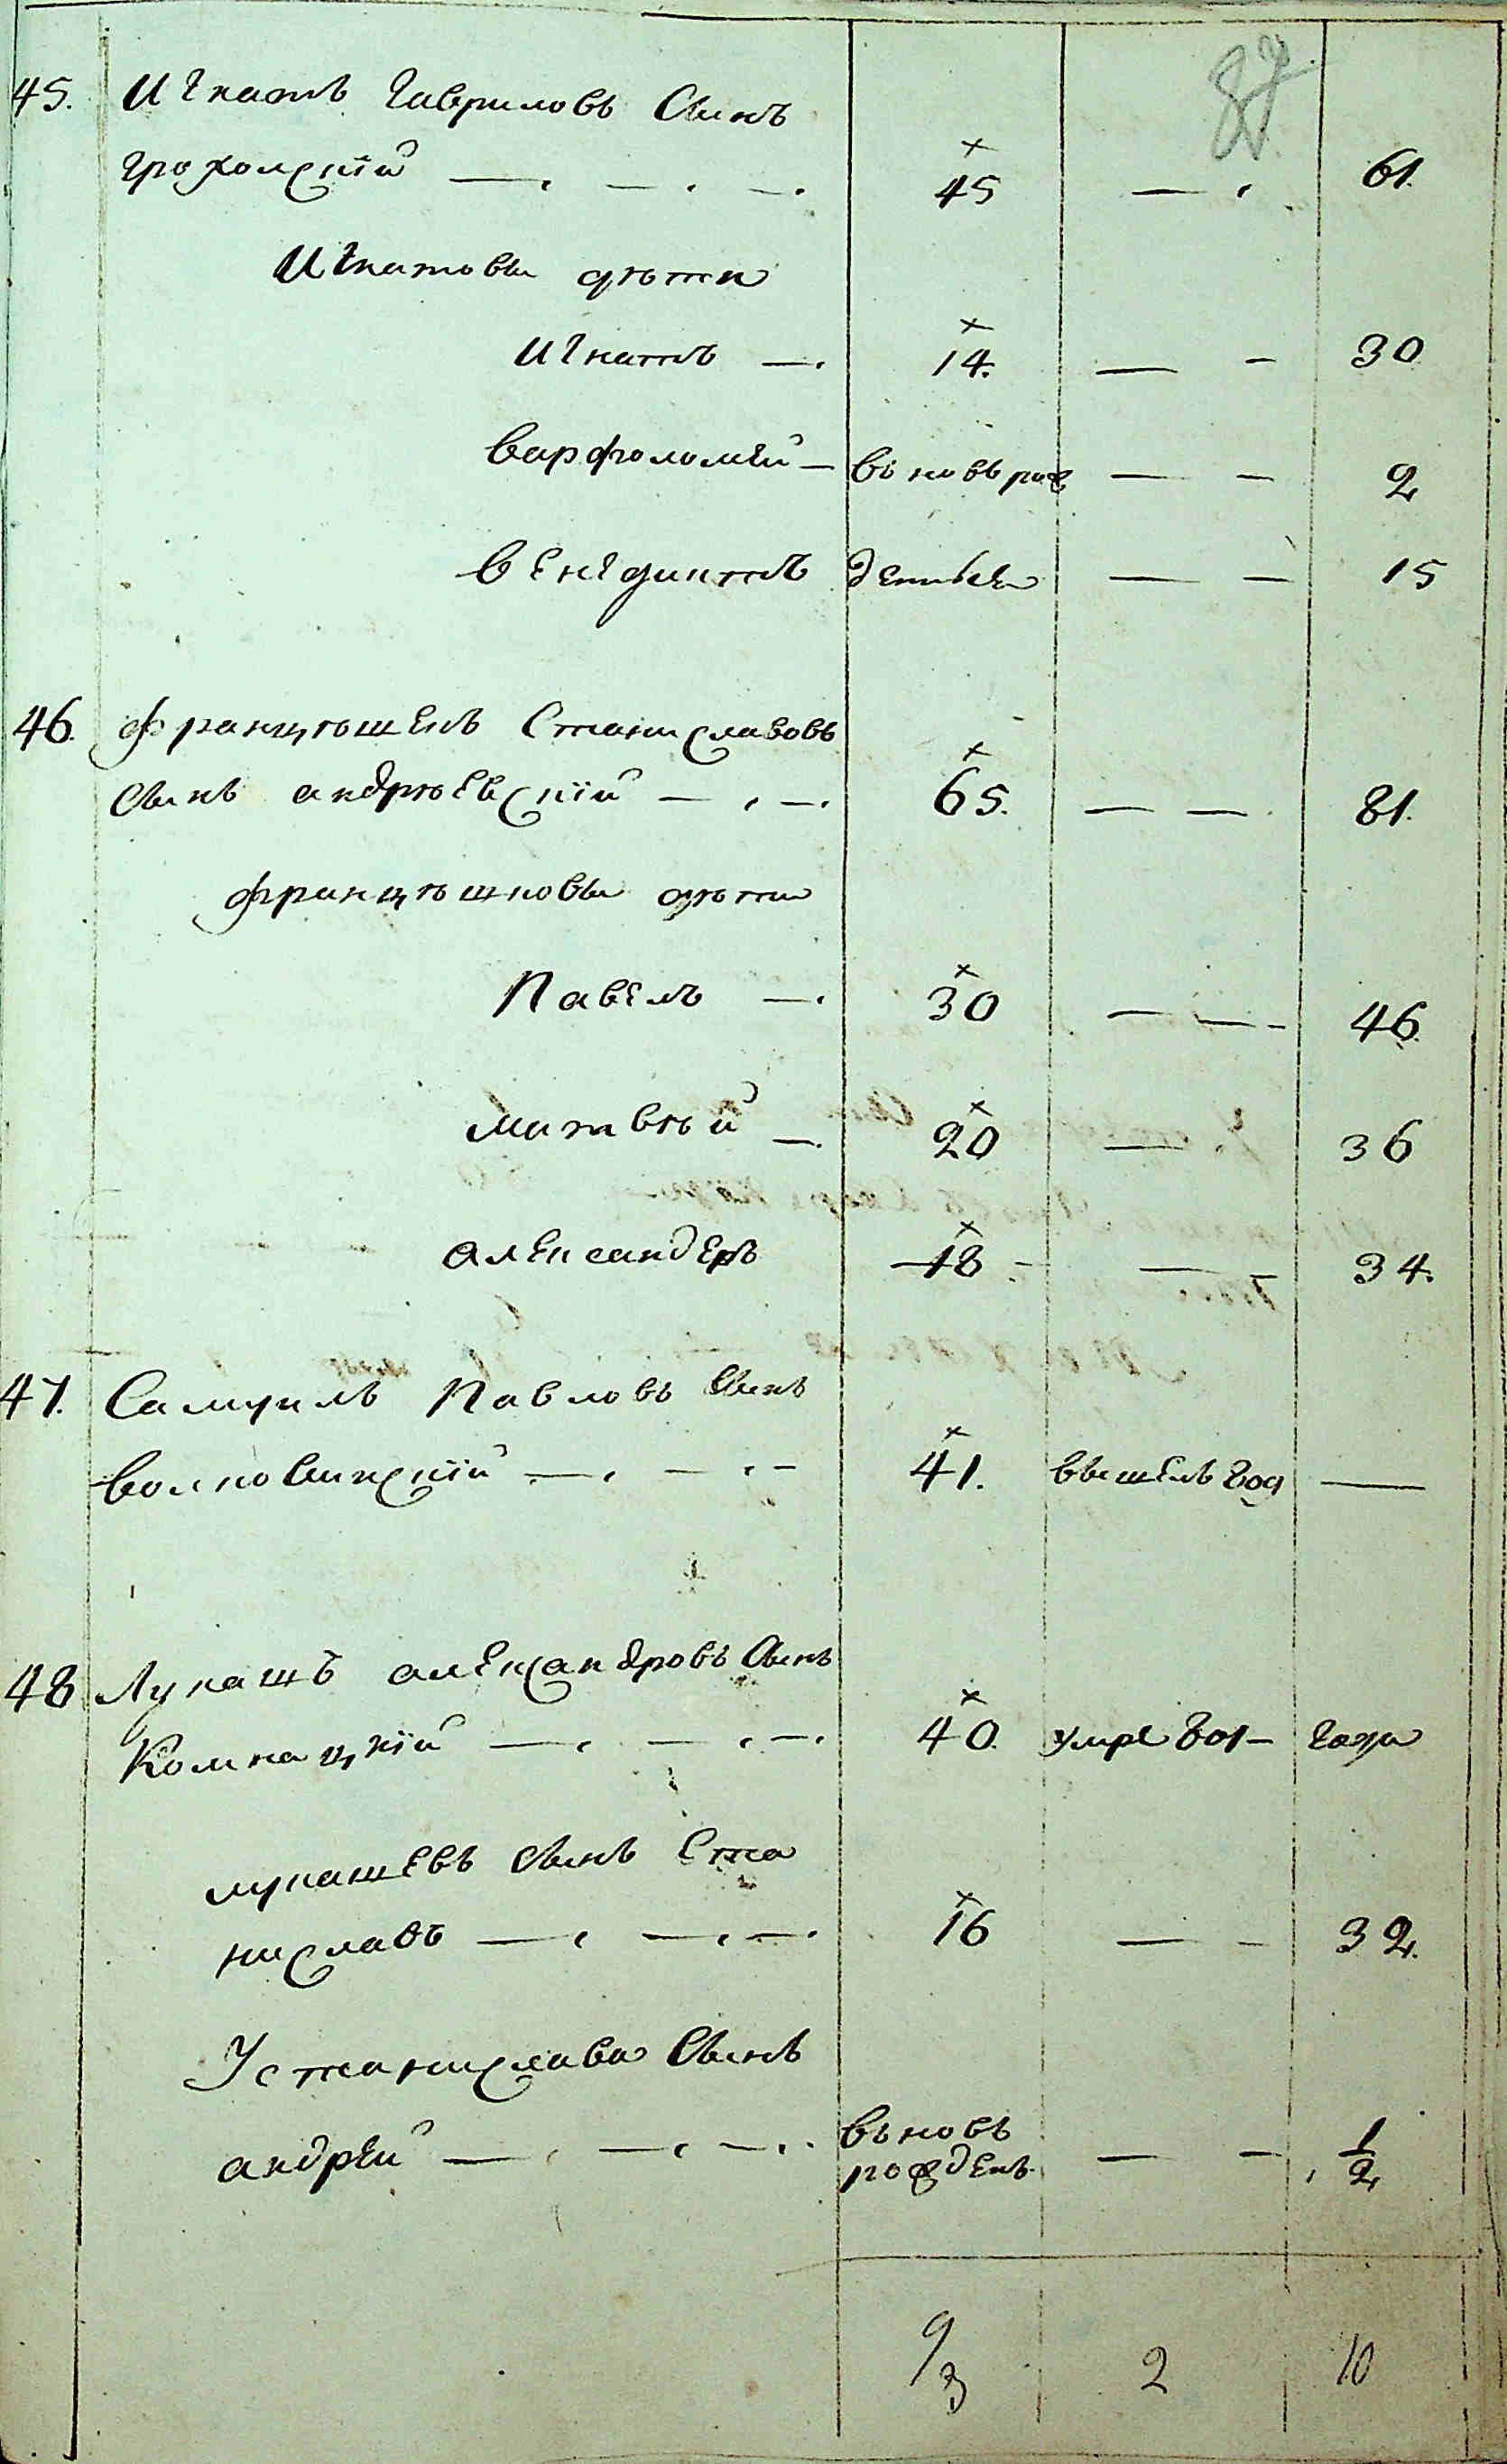 87
45. Игнатъ Гавриловъ Сынъ
Грохолскій 45 61.
Игнатовы дѣти
Игнатъ 14. 30
Варфоломей вновь рож 2
Венедиктъ 15
46. Францѣшекъ Станиславовъ
Сынъ Андрѣевскій 65. 81.
Францѣшковы дѣти
Павелъ 30 46.
Матвѣй 20 36
Александеръ 18 34.
47. Самуилъ Павловъ Сынъ
41. вышелъ
48 Лукашъ Александровъ Сынъ
40. умре года
Лукашевъ Сынъ Ста
ниславъ 16 32.
У Станислава Сынъ
Андрей вьновь рожденъ 1/2
9/3 2 10